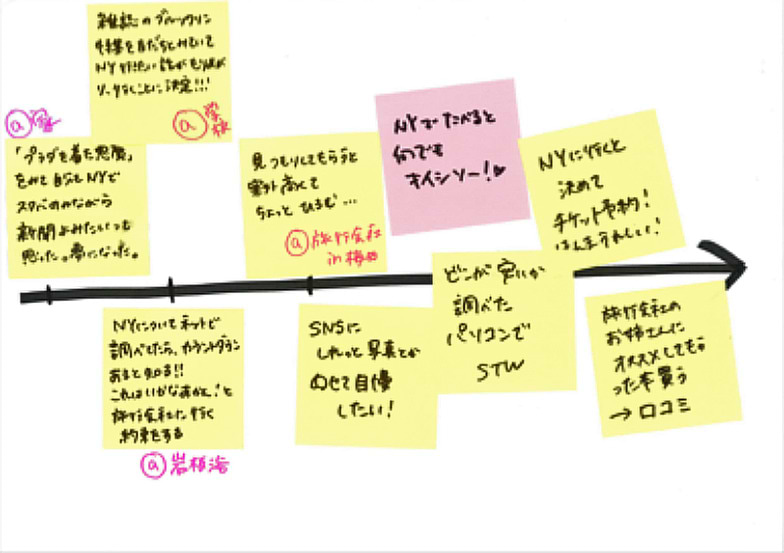 雑誌のブルックリン
特集を友だちとみていて
NY行きたい熱がもりあが
り、行くことに決定!!!
@学校
@家
「プラダを着た悪魔」
をみて自分もNYで
スタバのみながら
新聞よみたいっても
思った。夢になった。
見つもりしてもらうと
案外高くて
ちょっとひるむ…
@旅行会社
in梅田
NYでたべると
何でも
オイシソー!♥
NYに行くと
決めて
チケット予約!
ほんまうれしい!
NYについてネットで
調べてたら、カウントダウン
あると知る!!
これはいかなあかん!と
旅行会社に行く
約束をする
@岩根海
SNSに
しれっと写真とか
のせて自慢
したい!
どこが安いか
調べた
パソコンで
STW
旅行会社の
お姉さんに
オススメしてもら
った本買う
→口コミ